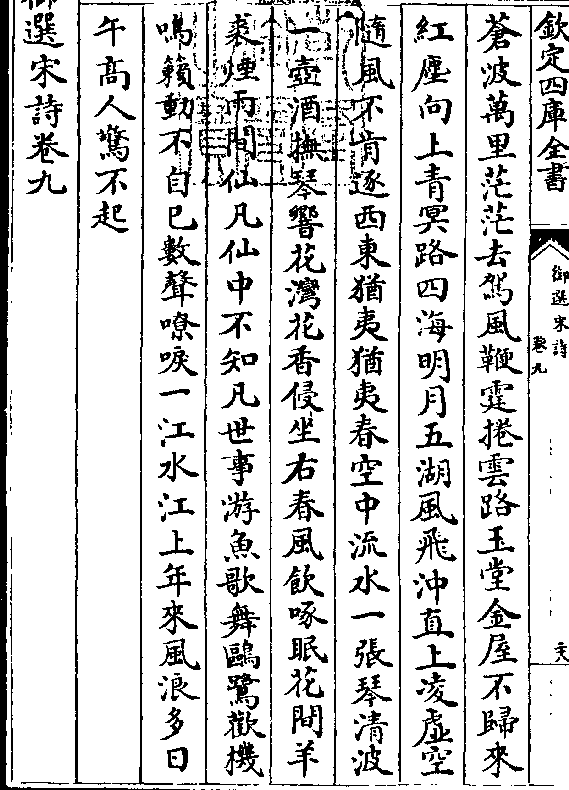 欽定四庫全書
御選宋詩
卷九
蒼波萬里茫茫去駕風鞭霆捲雲路玉堂金屋不歸來
紅塵向上青冥路四海明月五湖風飛沖直上凌虛空
隨風不肯逐西東猶夷猶夷春空中流水一張琴清波
一壺酒撫琴響花灣花香侵坐右春風飲啄眠花間羊
裘煙雨間仙凡仙中不知凡世事游魚歌舞鷗鷺歡機
鳴籟動不自已數聲嘹唳一江水江上年來風浪多日
午高人驚不起
御選宋詩卷九